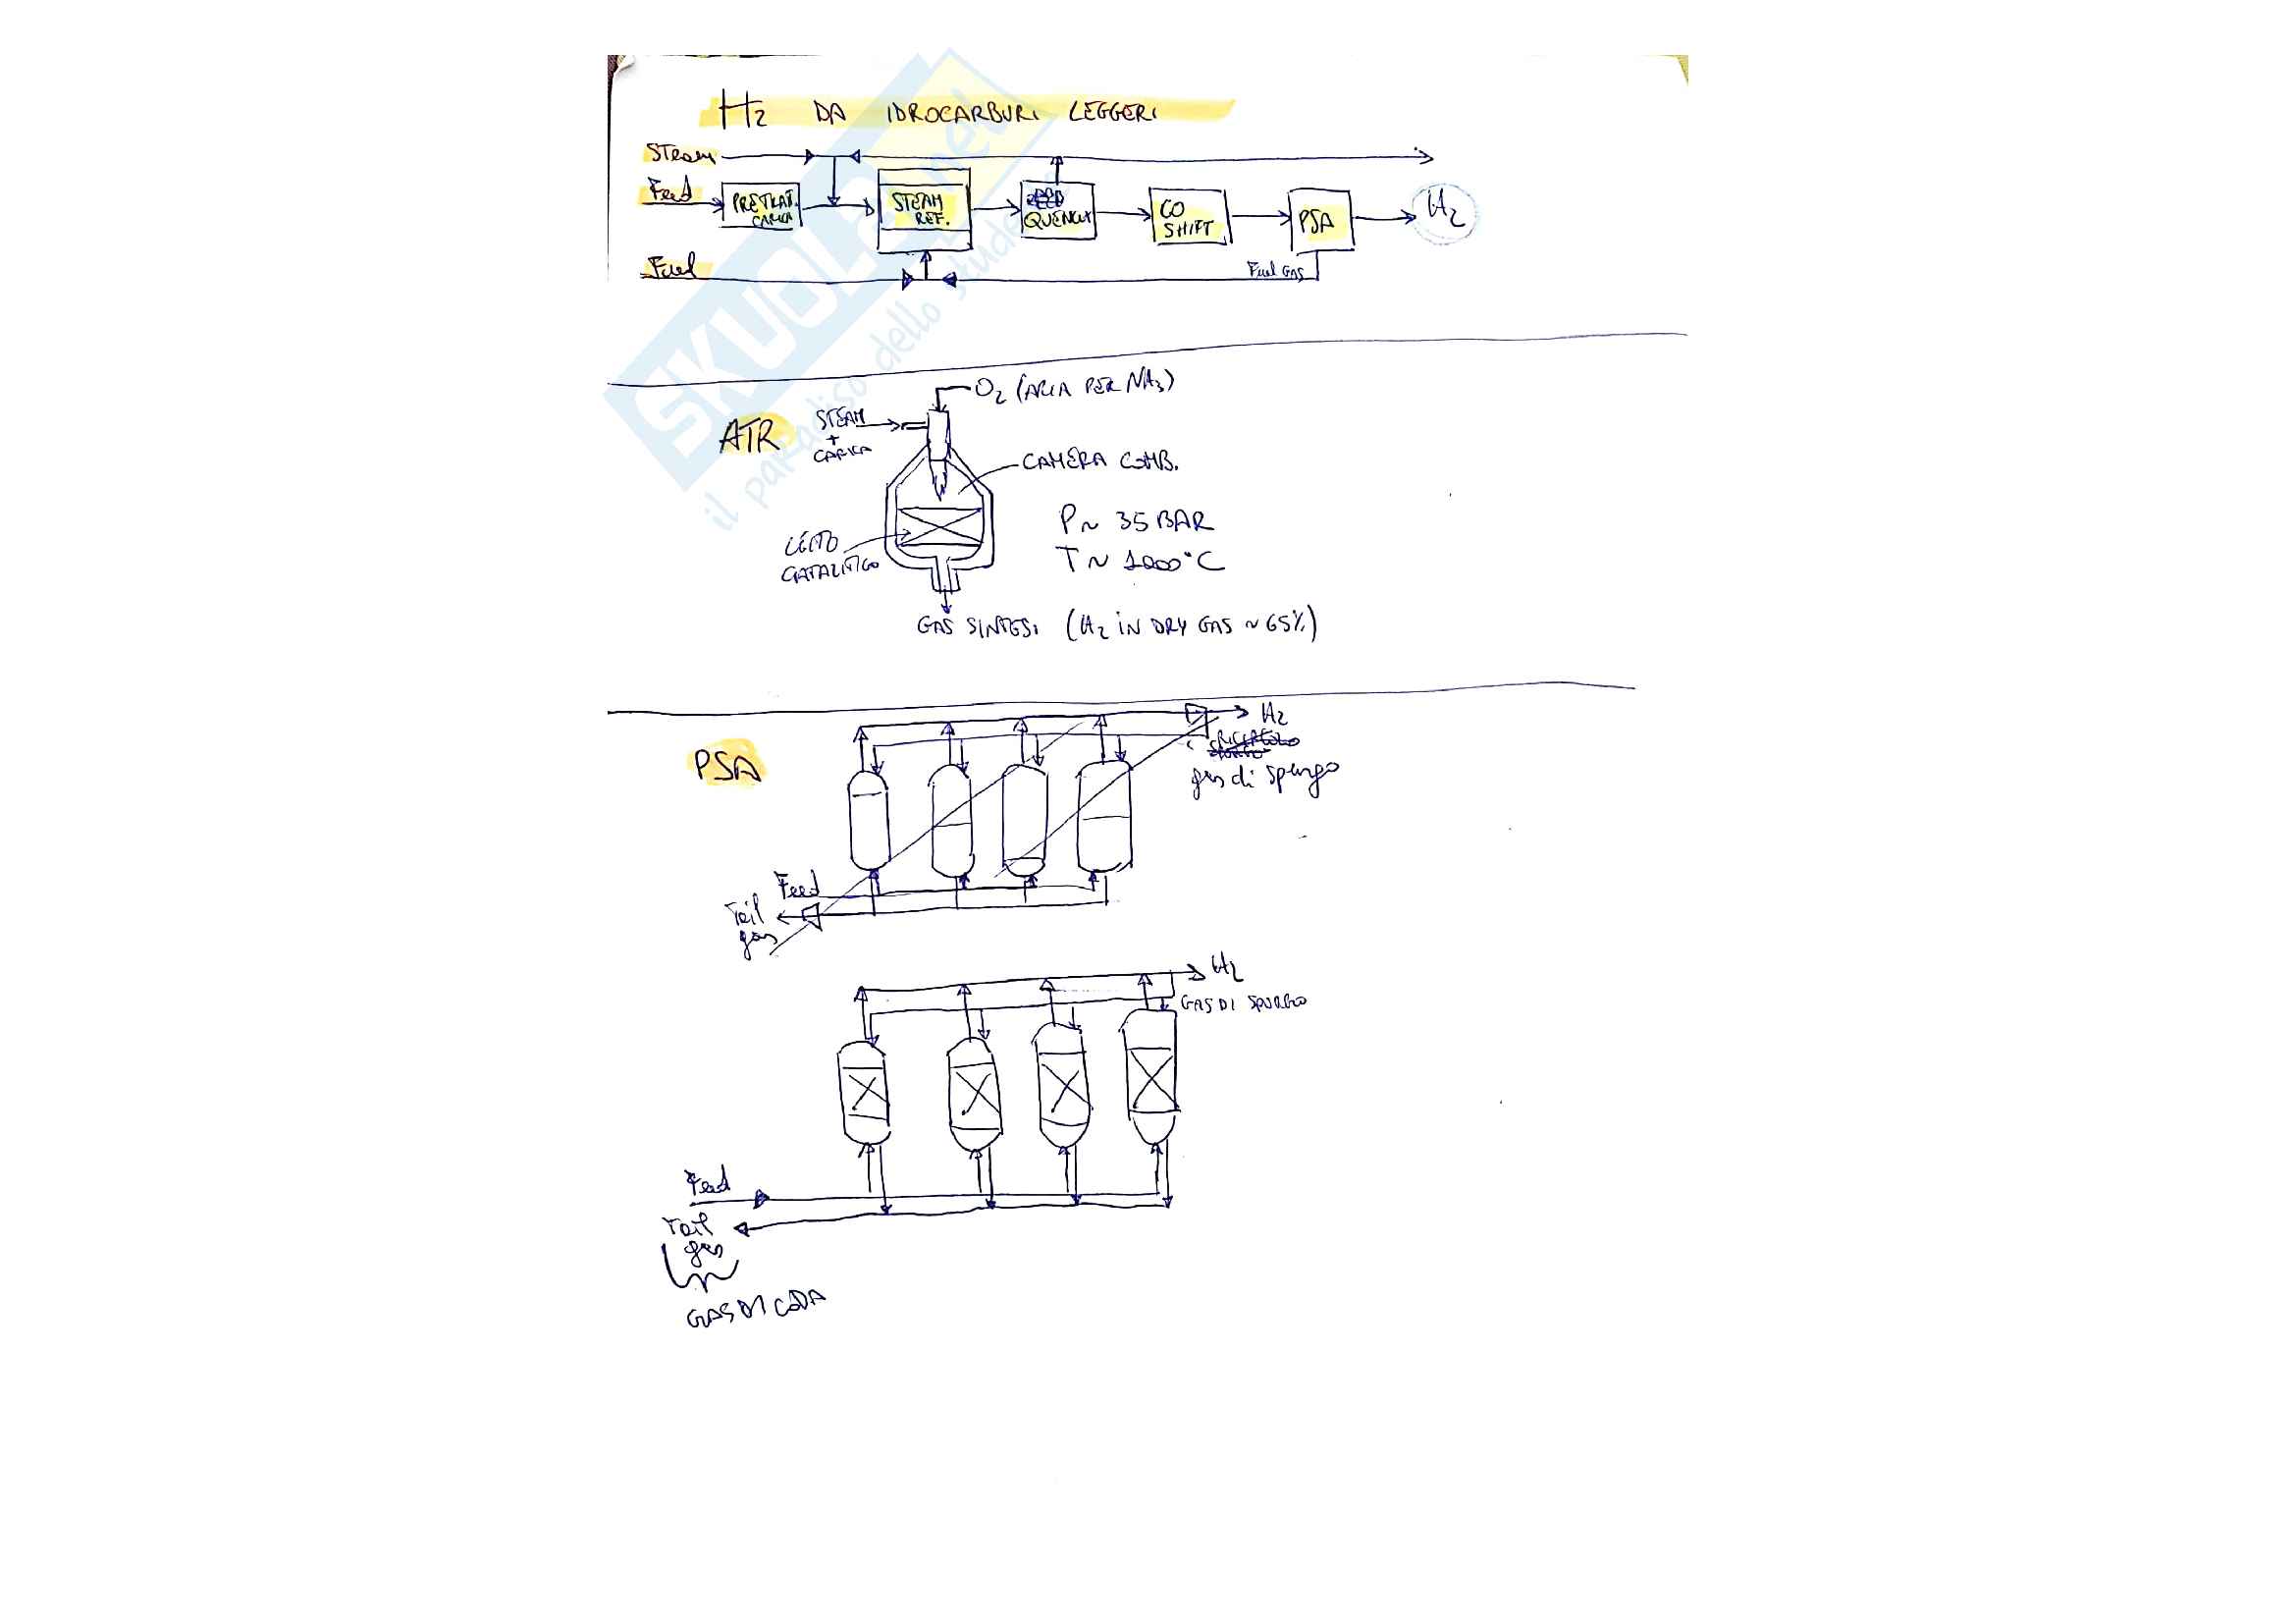 H2 DA IDROCARBURI LEGGERI
Steam
Feed
PRETRAT. CARICA
STEAM REF.
QUENCH
CO SHIFT
PSA
H2
Fuel
Fuel GAS
SKUOLA.net
il paradiso dello studente
ATR
O2 (ARIA PER NH3)
STEAM
+
CARICA
CAMERA COMB.
P~ 35 BAR
T~ 1000°C
LETTO
CATALITICO
GAS SINTESI (H2 IN DRY GAS ~ 65%)
PSA
H2
gas di spurgo
Feed
Tail
gas
H2
GAS DI SPURGO
Feed
Tail
gas
GAS DI CODA